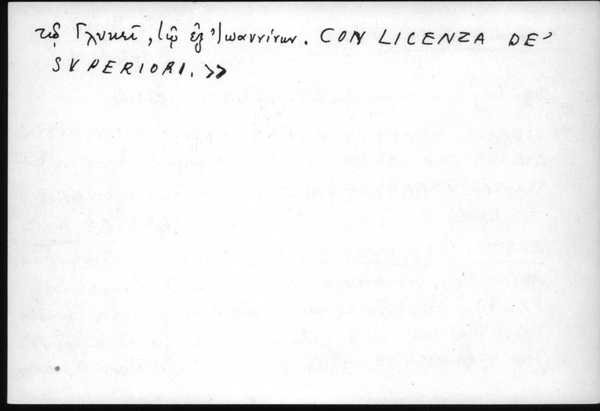 τῷ Γλυκεῖ, τῷ ἐξ Ἰωαννίνων. CON LICENZA DE'
SVPERIORI. >>